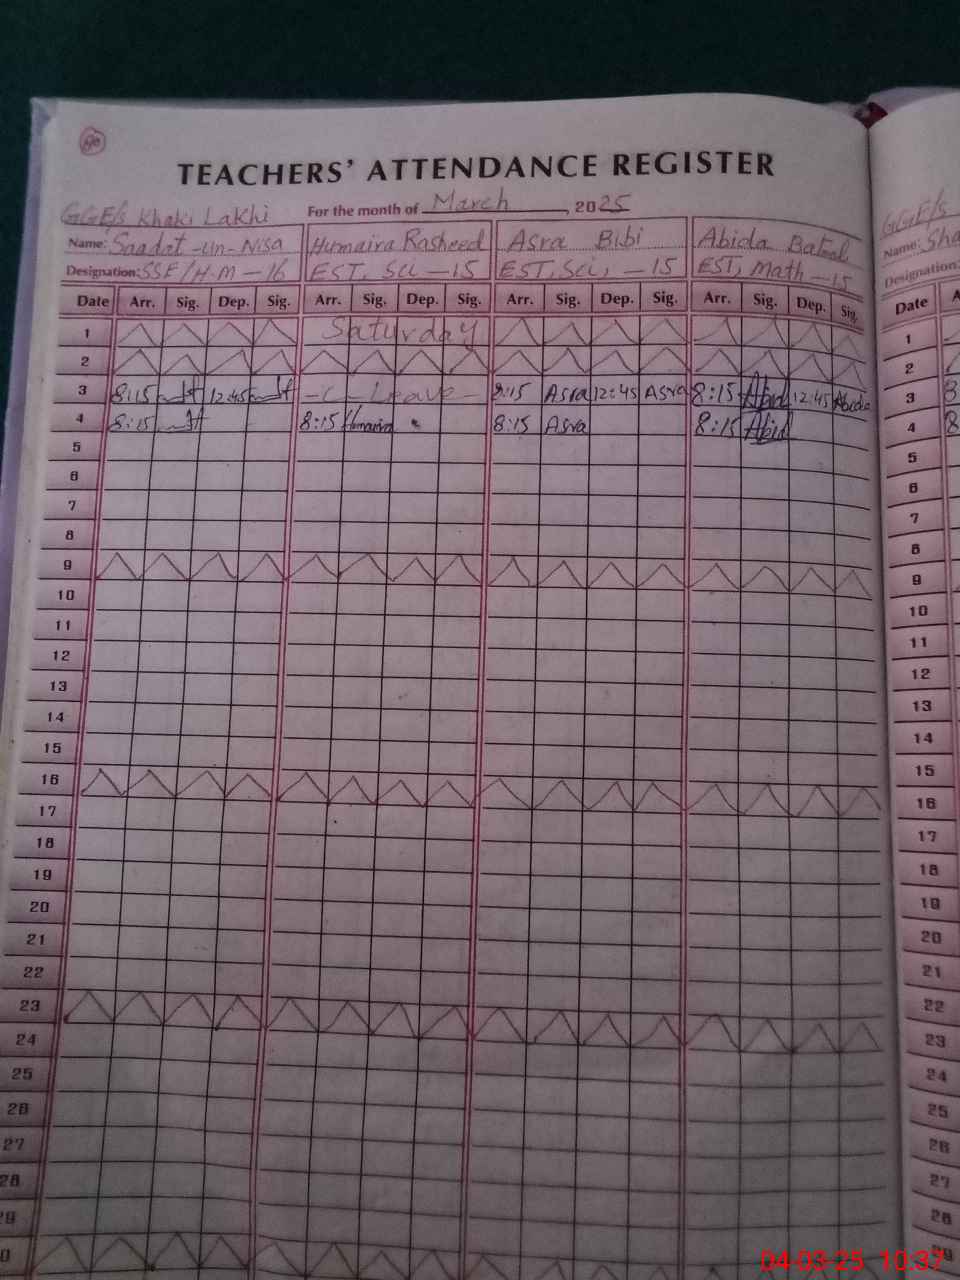 TEACHERS' ATTENDANCE REGISTER
GGE/S Khaki Lakhi For the month of March, 2025
Name: Saadat-Un-Nisa Humaira Rasheed Asra Bibi Abida Batool
Designation: SSE/H.M-16 EST, Sci-15 EST, Sci, -15 EST, Math-15
Date Arr. Sig. Dep. Sig. Arr. Sig. Dep. Sig. Arr. Sig. Dep. Sig. Arr. Sig. Dep. Sig.
1 Saturday
2
3 8:15 12:45 -C-Leave- 8:15 Asra 12:45 Asra 8:15 Abid 12:45 Abida
4 8:15 8:15 Humaira 8:15 Asra 8:15 Abid
5
6
7
8
9
10
11
12
13
14
15
16
17
18
19
20
21
22
23
24
25
26
27
28
29
0
GGE/S
Name: Sha
Designation:
Date A
1
2
3 8
4 8
5
6
7
8
9
10
11
12
13
14
15
16
17
18
19
20
21
22
23
24
25
26
27
28
29
04-03-25 10:37